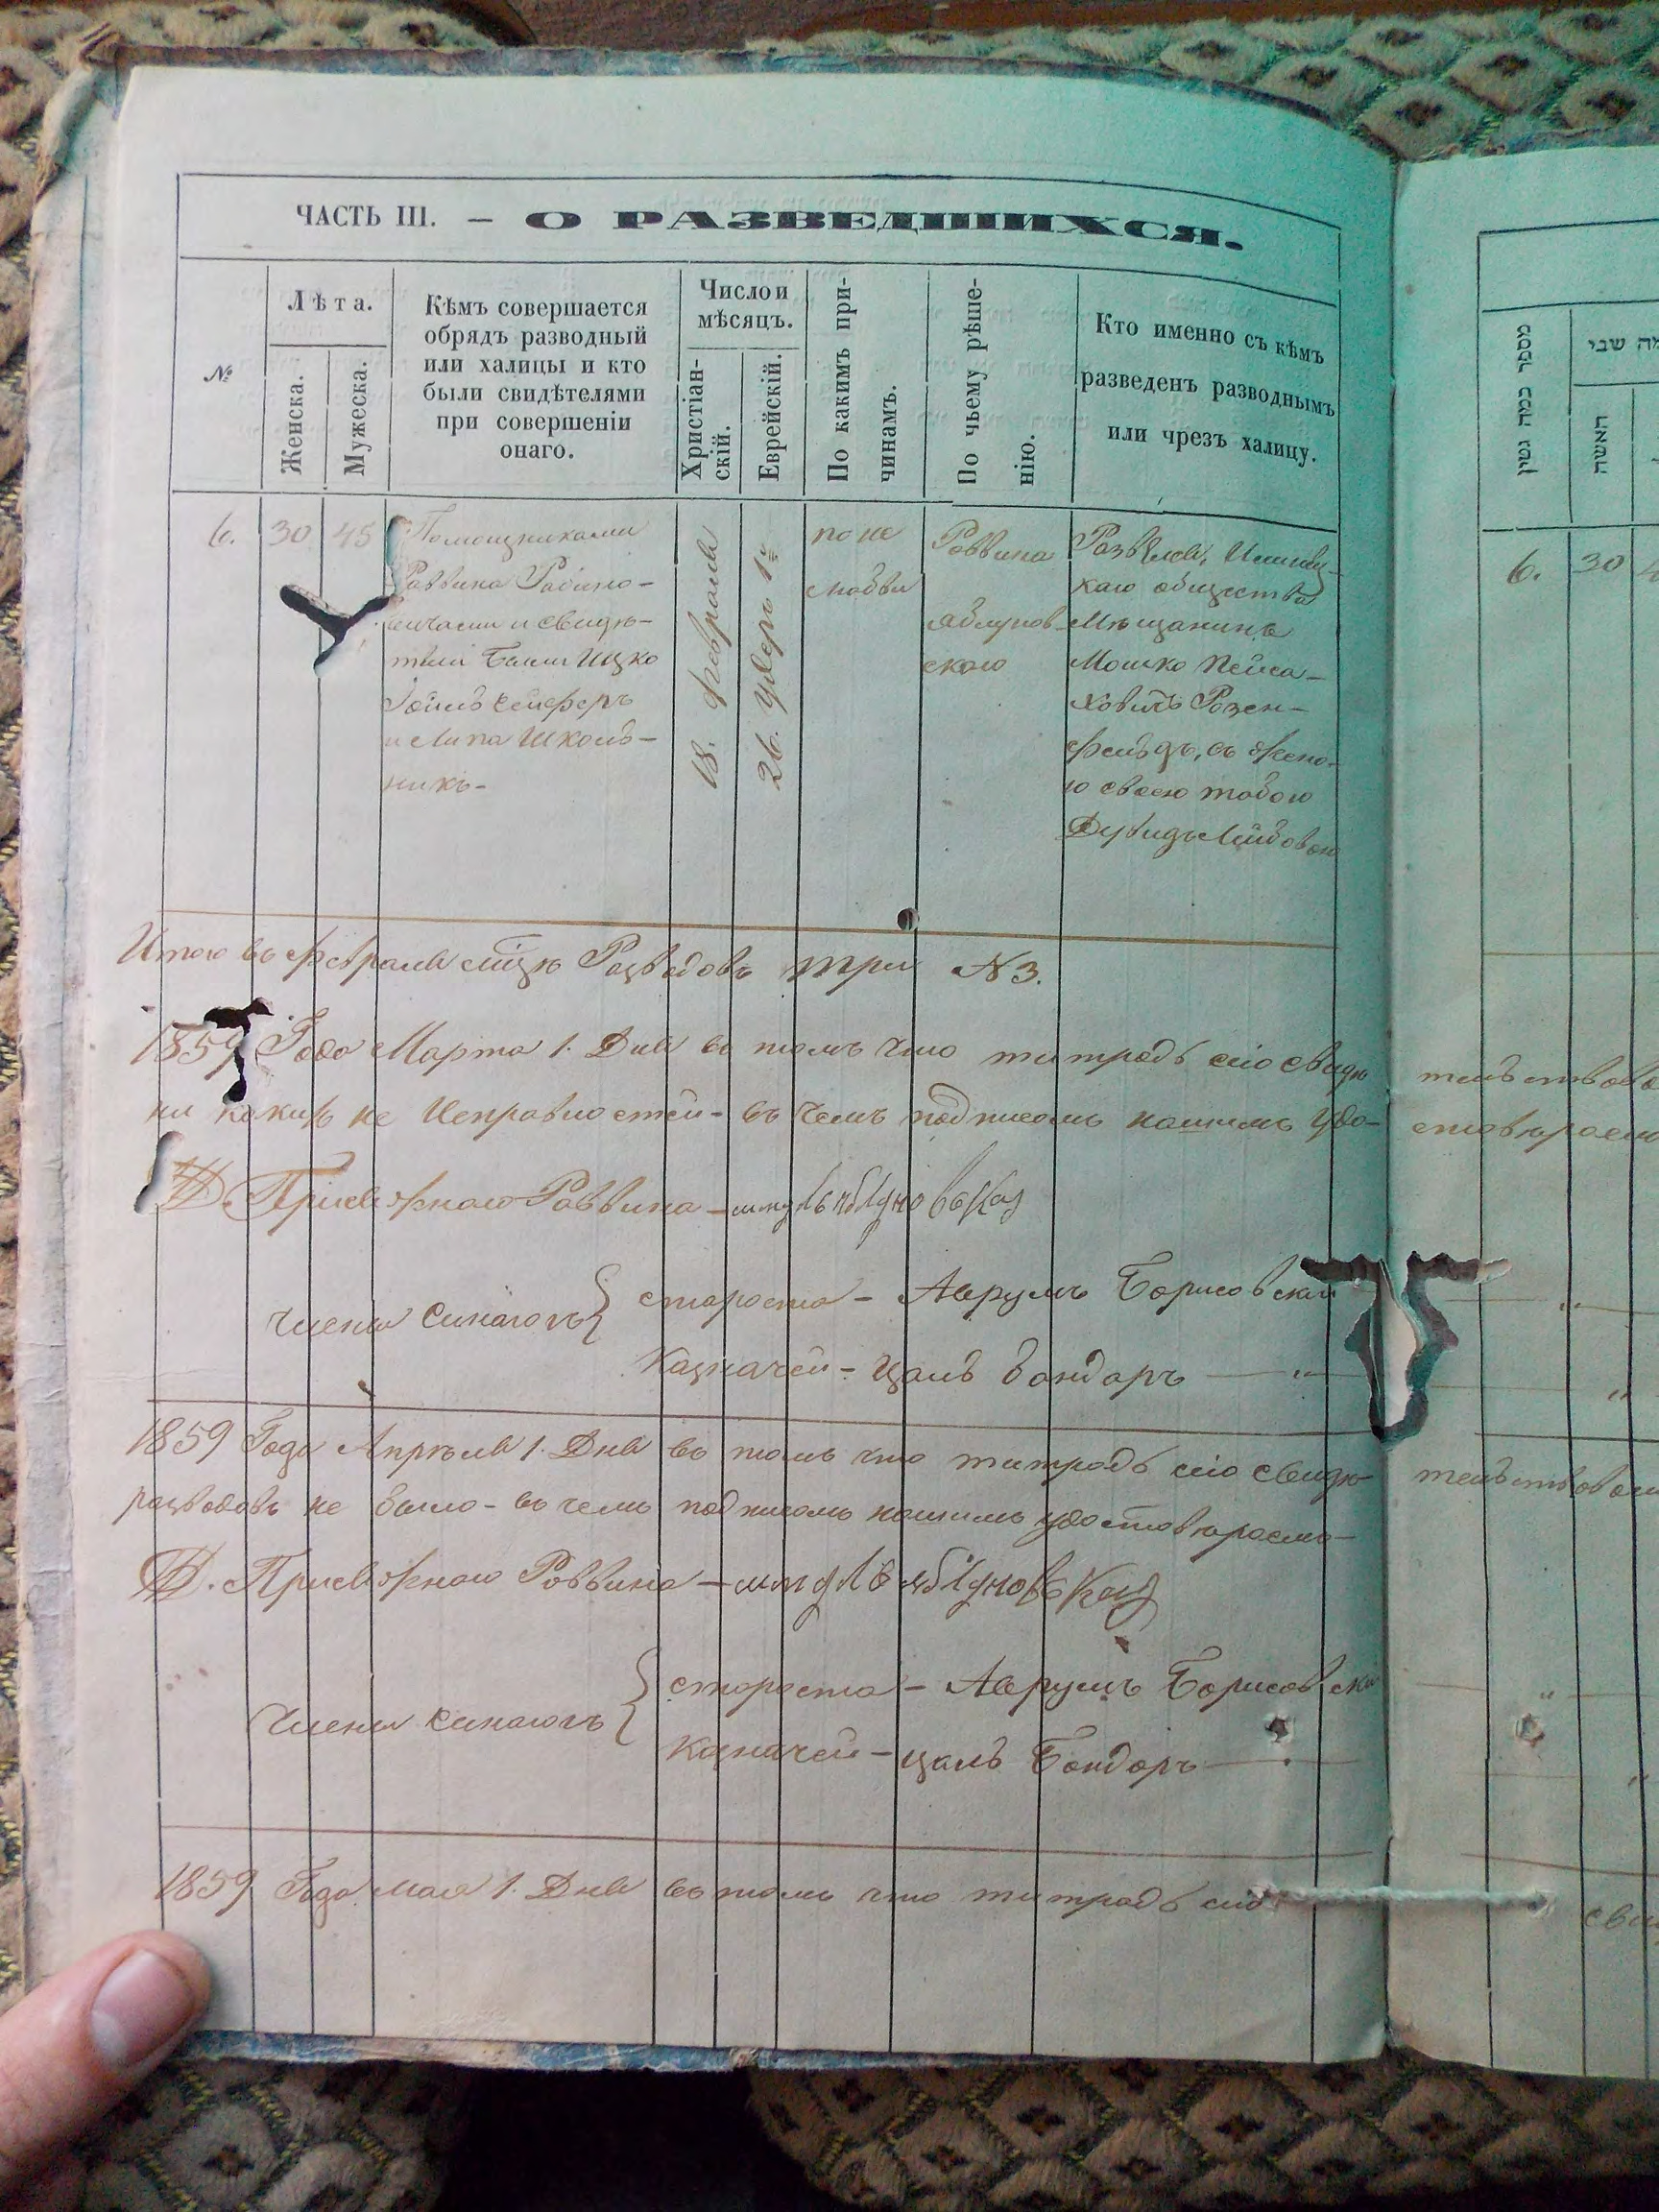 ЧАСТЬ III. – О РАЗВЕДШИХСЯ.
№
Лѣта.
Женска.
Мужеска.
Кѣмъ совершается
обрядъ разводный
или халицы и кто
были свидѣтелями
при совершеніи
онаго.
Число и
мѣсяцъ.
Христіан-
скій.
Еврейскій.
По какимъ при-
чинамъ.
По чьему рѣше-
нію.
Кто именно съ кѣмъ
разведенъ разводнымъ
или чрезъ халицу.
6.
30
45
Помощниками
Раввина Рабино-
вичами и свидѣ-
тели Ицко
и Липа Школь-
никъ-
18. февраля
26. Удеръ 1й
по не
любви
Раввина
Яблунов-
скаго
каго общества
Мѣщанинъ
Мошко Пейса-
ховичъ Розен-
фельдъ, съ жено-
ю своею
Дувидъ Лейбовою
Итого въ феврале мцѣ Разводовъ три N 3.
1859 Года Марта 1. Дня въ томъ что тетрадь сію свидѣ
ни какихъ не Исправностей - въ чемъ подписомъ нашимъ удо-
Д. Присяжнаго Раввина - Яблуновскай
члены Синагогъ { староста - Аврумъ Борисовскій
Казначей - Цаль Бондаръ — "
1859 Года Апрѣля 1. Дня въ томъ что тетрадь сію свидѣ-
разводовъ не было - въ чемъ подписомъ нашимъ удостовѣряемъ-
Д. Присяжнаго Раввина - Яблуновскай
члены синагогъ { староста - Аврумъ Борисовскі
Казначей - Цаль Бондаръ
1859 Года мая 1. Дня въ томъ что тетрадь сію
מספר כמה גטין
האשה
6.
30
тельствова
стовѣряемъ
"
"
тельствовали
"
"